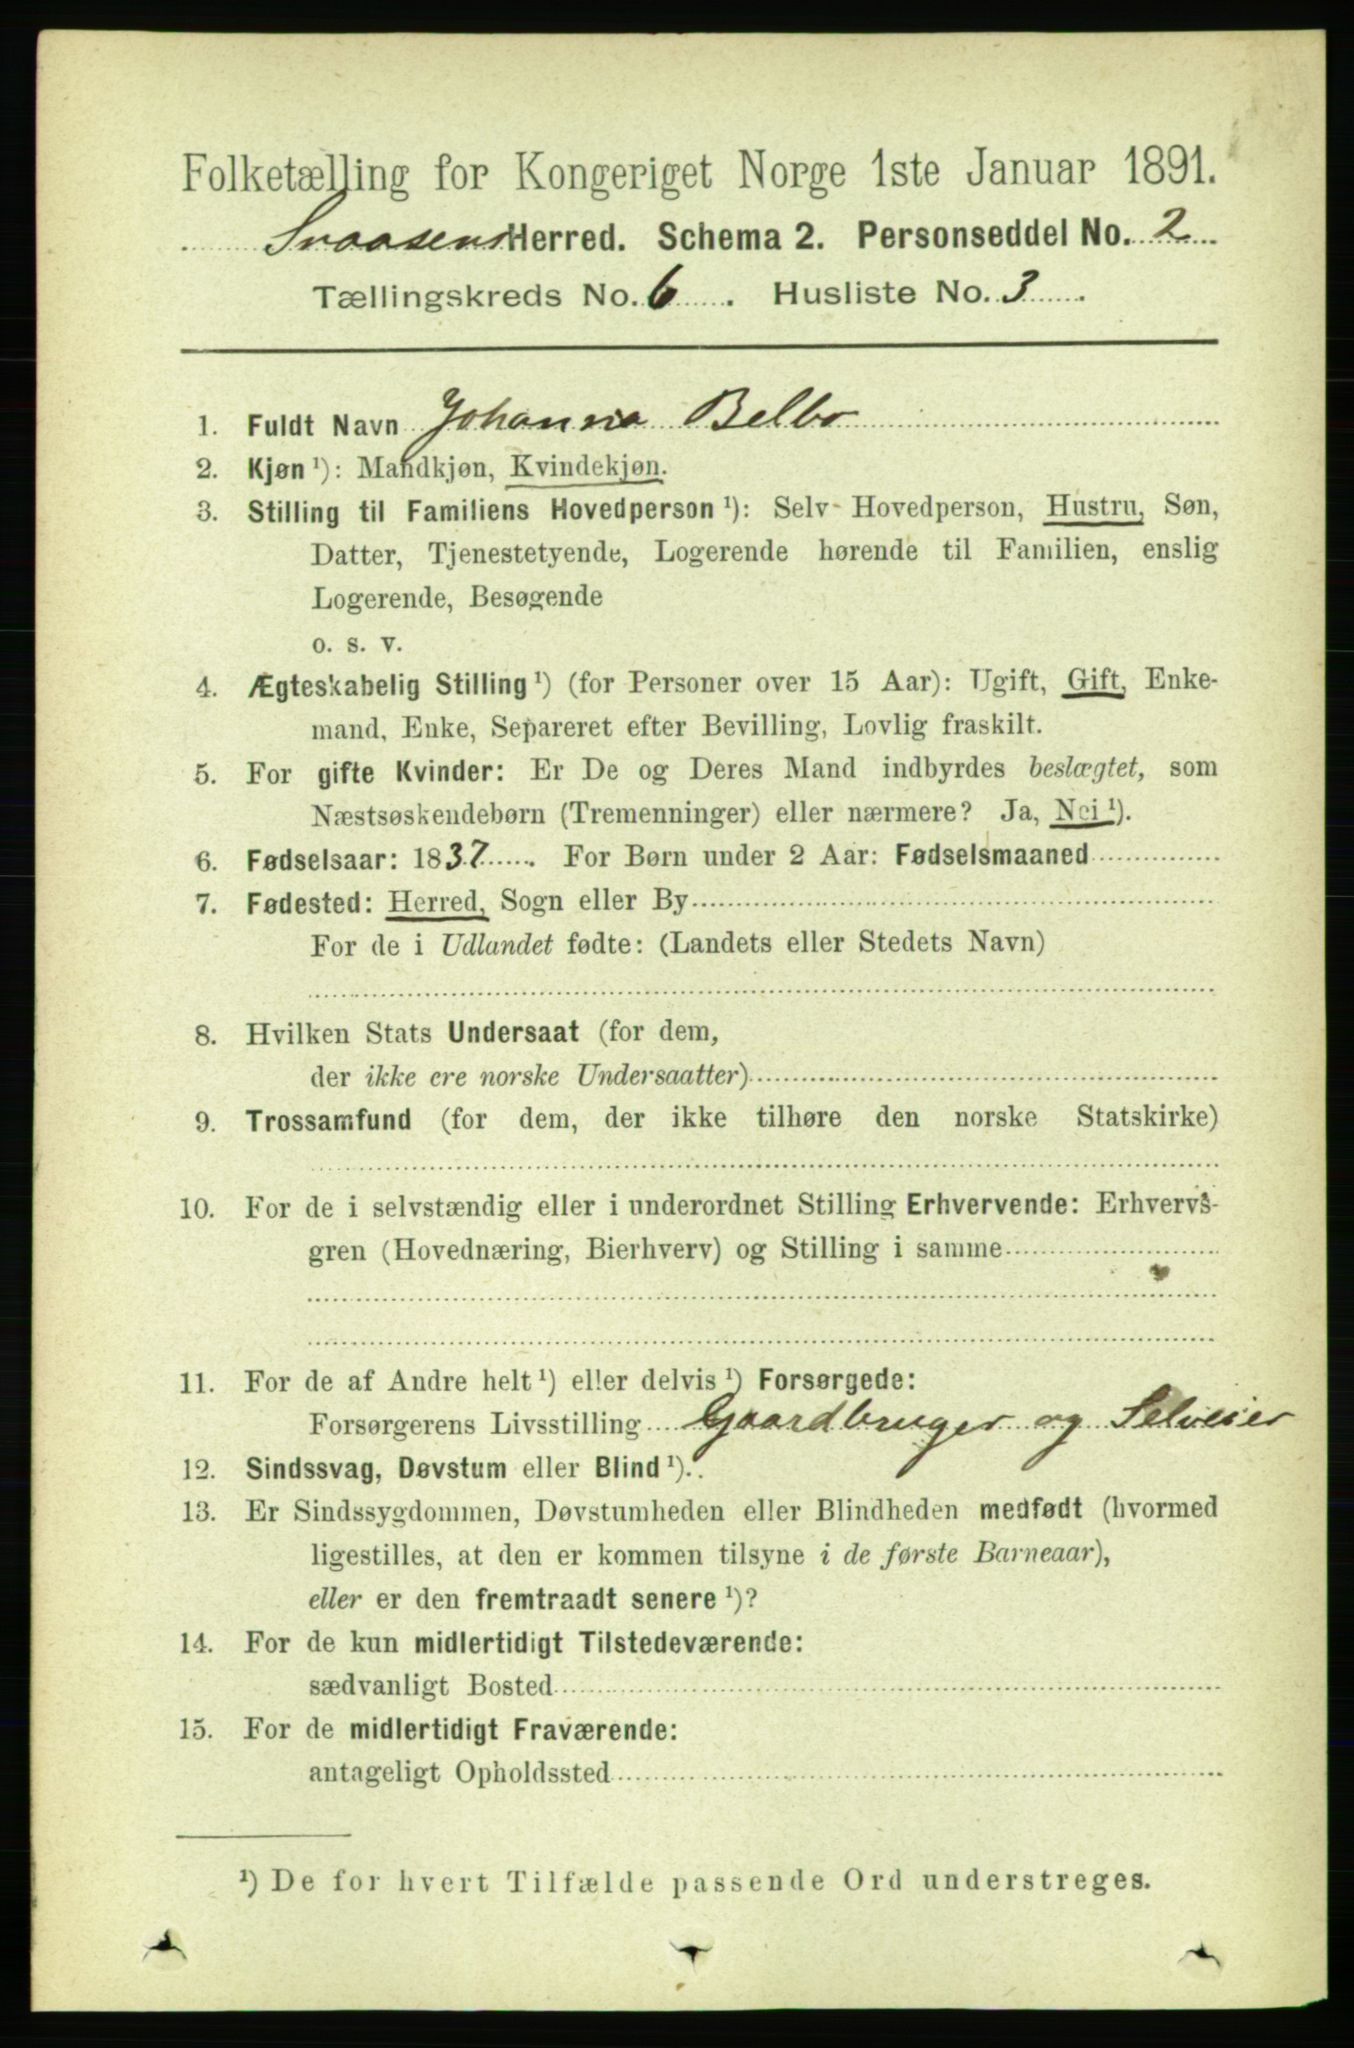 Folketælling for Kongeriget Norge 1ste Januar 1891.
Snaasens Herred. Schema 2. Personseddel No. 2
Tællingskreds No. 6. Husliste No. 3.
1. Fuldt Navn Johanna Belbo
2. Kjøn ¹): Mandkjøn, Kvindekjøn.
3. Stilling til Familiens Hovedperson ¹): Selv Hovedperson, Hustru, Søn,
Datter, Tjenestetyende, Logerende hørende til Familien, enslig
Logerende, Besøgende
o. s. v.
4. Ægteskabelig Stilling ¹) (for Personer over 15 Aar): Ugift, Gift, Enke-
mand, Enke, Separeret efter Bevilling, Lovlig fraskilt.
5. For gifte Kvinder: Er De og Deres Mand indbyrdes beslægtet, som
Næstsøskendebørn (Tremenninger) eller nærmere? Ja, Nei ¹).
6. Fødselsaar: 1837. For Børn under 2 Aar: Fødselsmaaned
7. Fødested: Herred, Sogn eller By
For de i Udlandet fødte: (Landets eller Stedets Navn)
8. Hvilken Stats Undersaat (for dem,
der ikke ere norske Undersaatter)
9. Trossamfund (for dem, der ikke tilhøre den norske Statskirke)
10. For de i selvstændig eller i underordnet Stilling Erhvervende: Erhvervs-
gren (Hovednæring, Bierhverv) og Stilling i samme
11. For de af Andre helt ¹) eller delvis ¹) Forsørgede:
Forsørgerens Livsstilling Gaardbruger og Selveier
12. Sindssvag, Døvstum eller Blind ¹).
13. Er Sindssygdommen, Døvstumheden eller Blindheden medfødt (hvormed
ligestilles, at den er kommen tilsyne i de første Barneaar),
eller er den fremtraadt senere ¹)?
14. For de kun midlertidigt Tilstedeværende:
sædvanligt Bosted
15. For de midlertidigt Fraværende:
antageligt Opholdssted
¹) De for hvert Tilfælde passende Ord understreges.